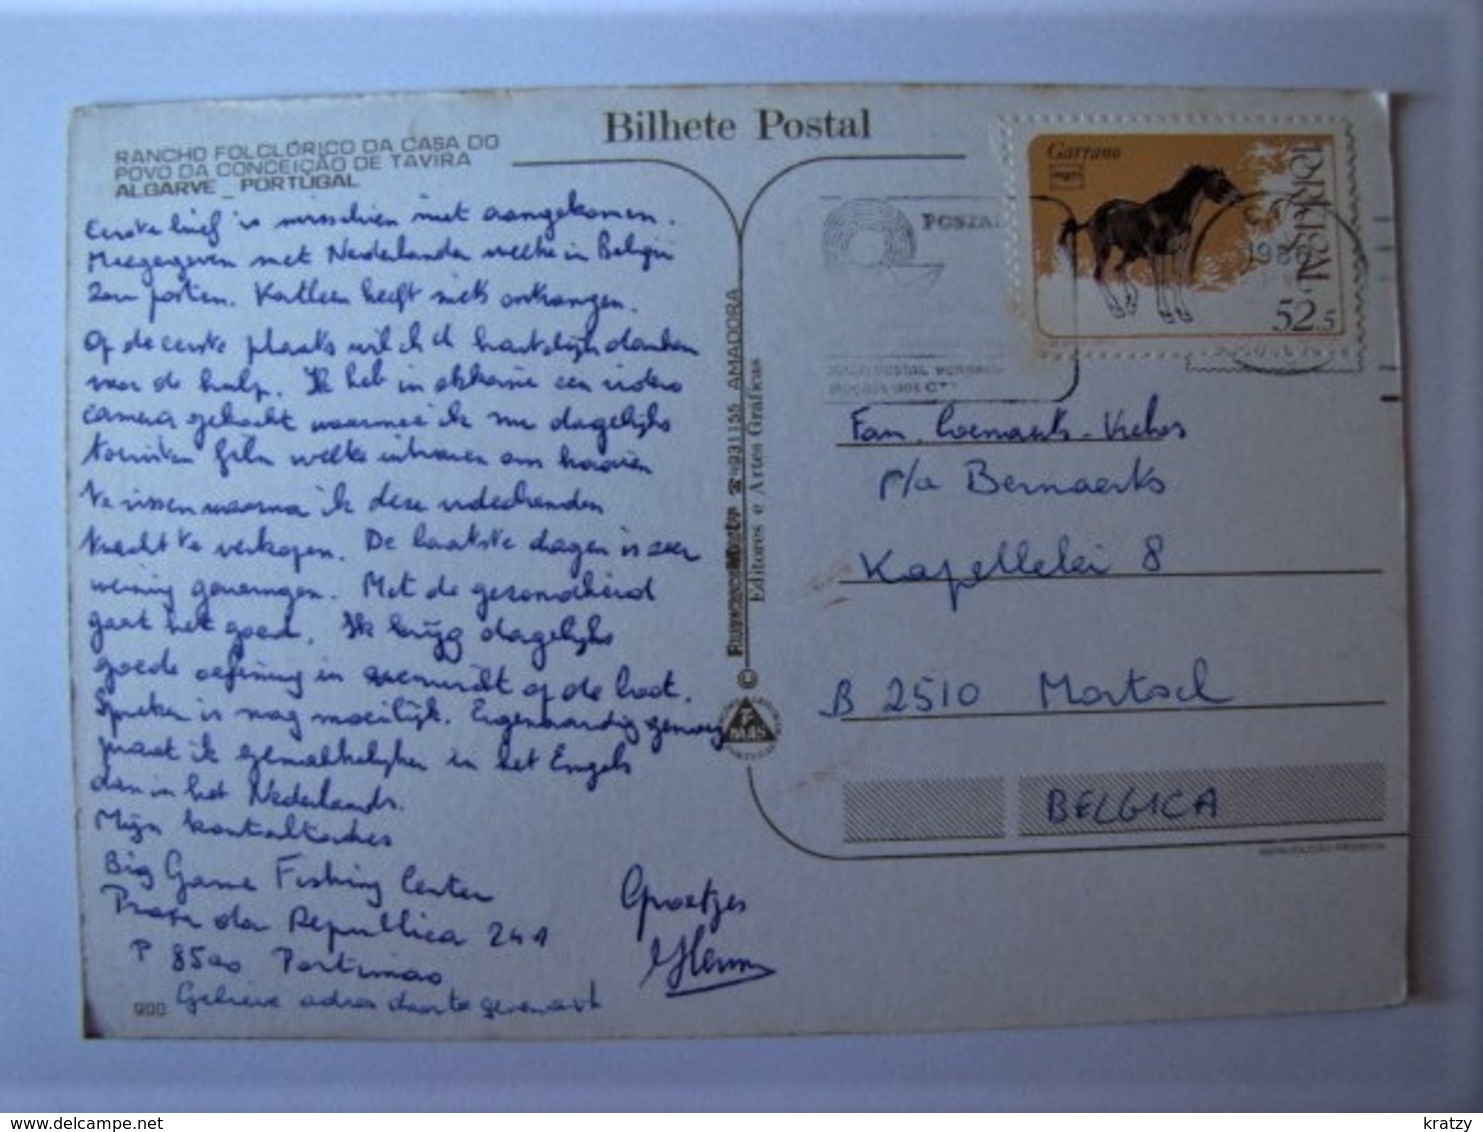 Bilhete Postal
RANCHO FOLCLÓRICO DA CASA DO
POVO DA CONCEIÇÃO DE TAVIRA
ALGARVE _ PORTUGAL
Eerste brief is misschien niet aangekomen.
Meegegeven met Nederlander welke in België
zou posten. Katleen heeft niets ontvangen.
Op de eerste plaats wil ik U hartelijk danken
voor de hulp. Ik heb in een video
camera gekocht waarmee ik nu dagelijks
toeristen film welke
te vissen waarna ik deze
tracht te verkopen. De laatste dagen is zeer
weinig gevangen. Met de gezondheid
gaat het goed. Ik krijg dagelijks
goede oefening in evenwicht op de boot.
Spreken is nog moeilijk. Eigenaardig genoeg
praat ik gemakkelijker in het Engels
dan in het Nederlands.
Mijn kontaktadres
Big Game Fishing Center
Praça da Republica 24A
P 8500 Portimao
Gelieve adres door te geven aub
900
Groetjes
Herm
Editores e Artes Gráficas
4931155 AMADORA
©
Garrano
PORTUGAL
52.5
POSTAL
1986
Fam.
p/a Bernaerts
Kapellelei 8
B 2510 Mortsel
BELGICA
kratzy
delcampe.net